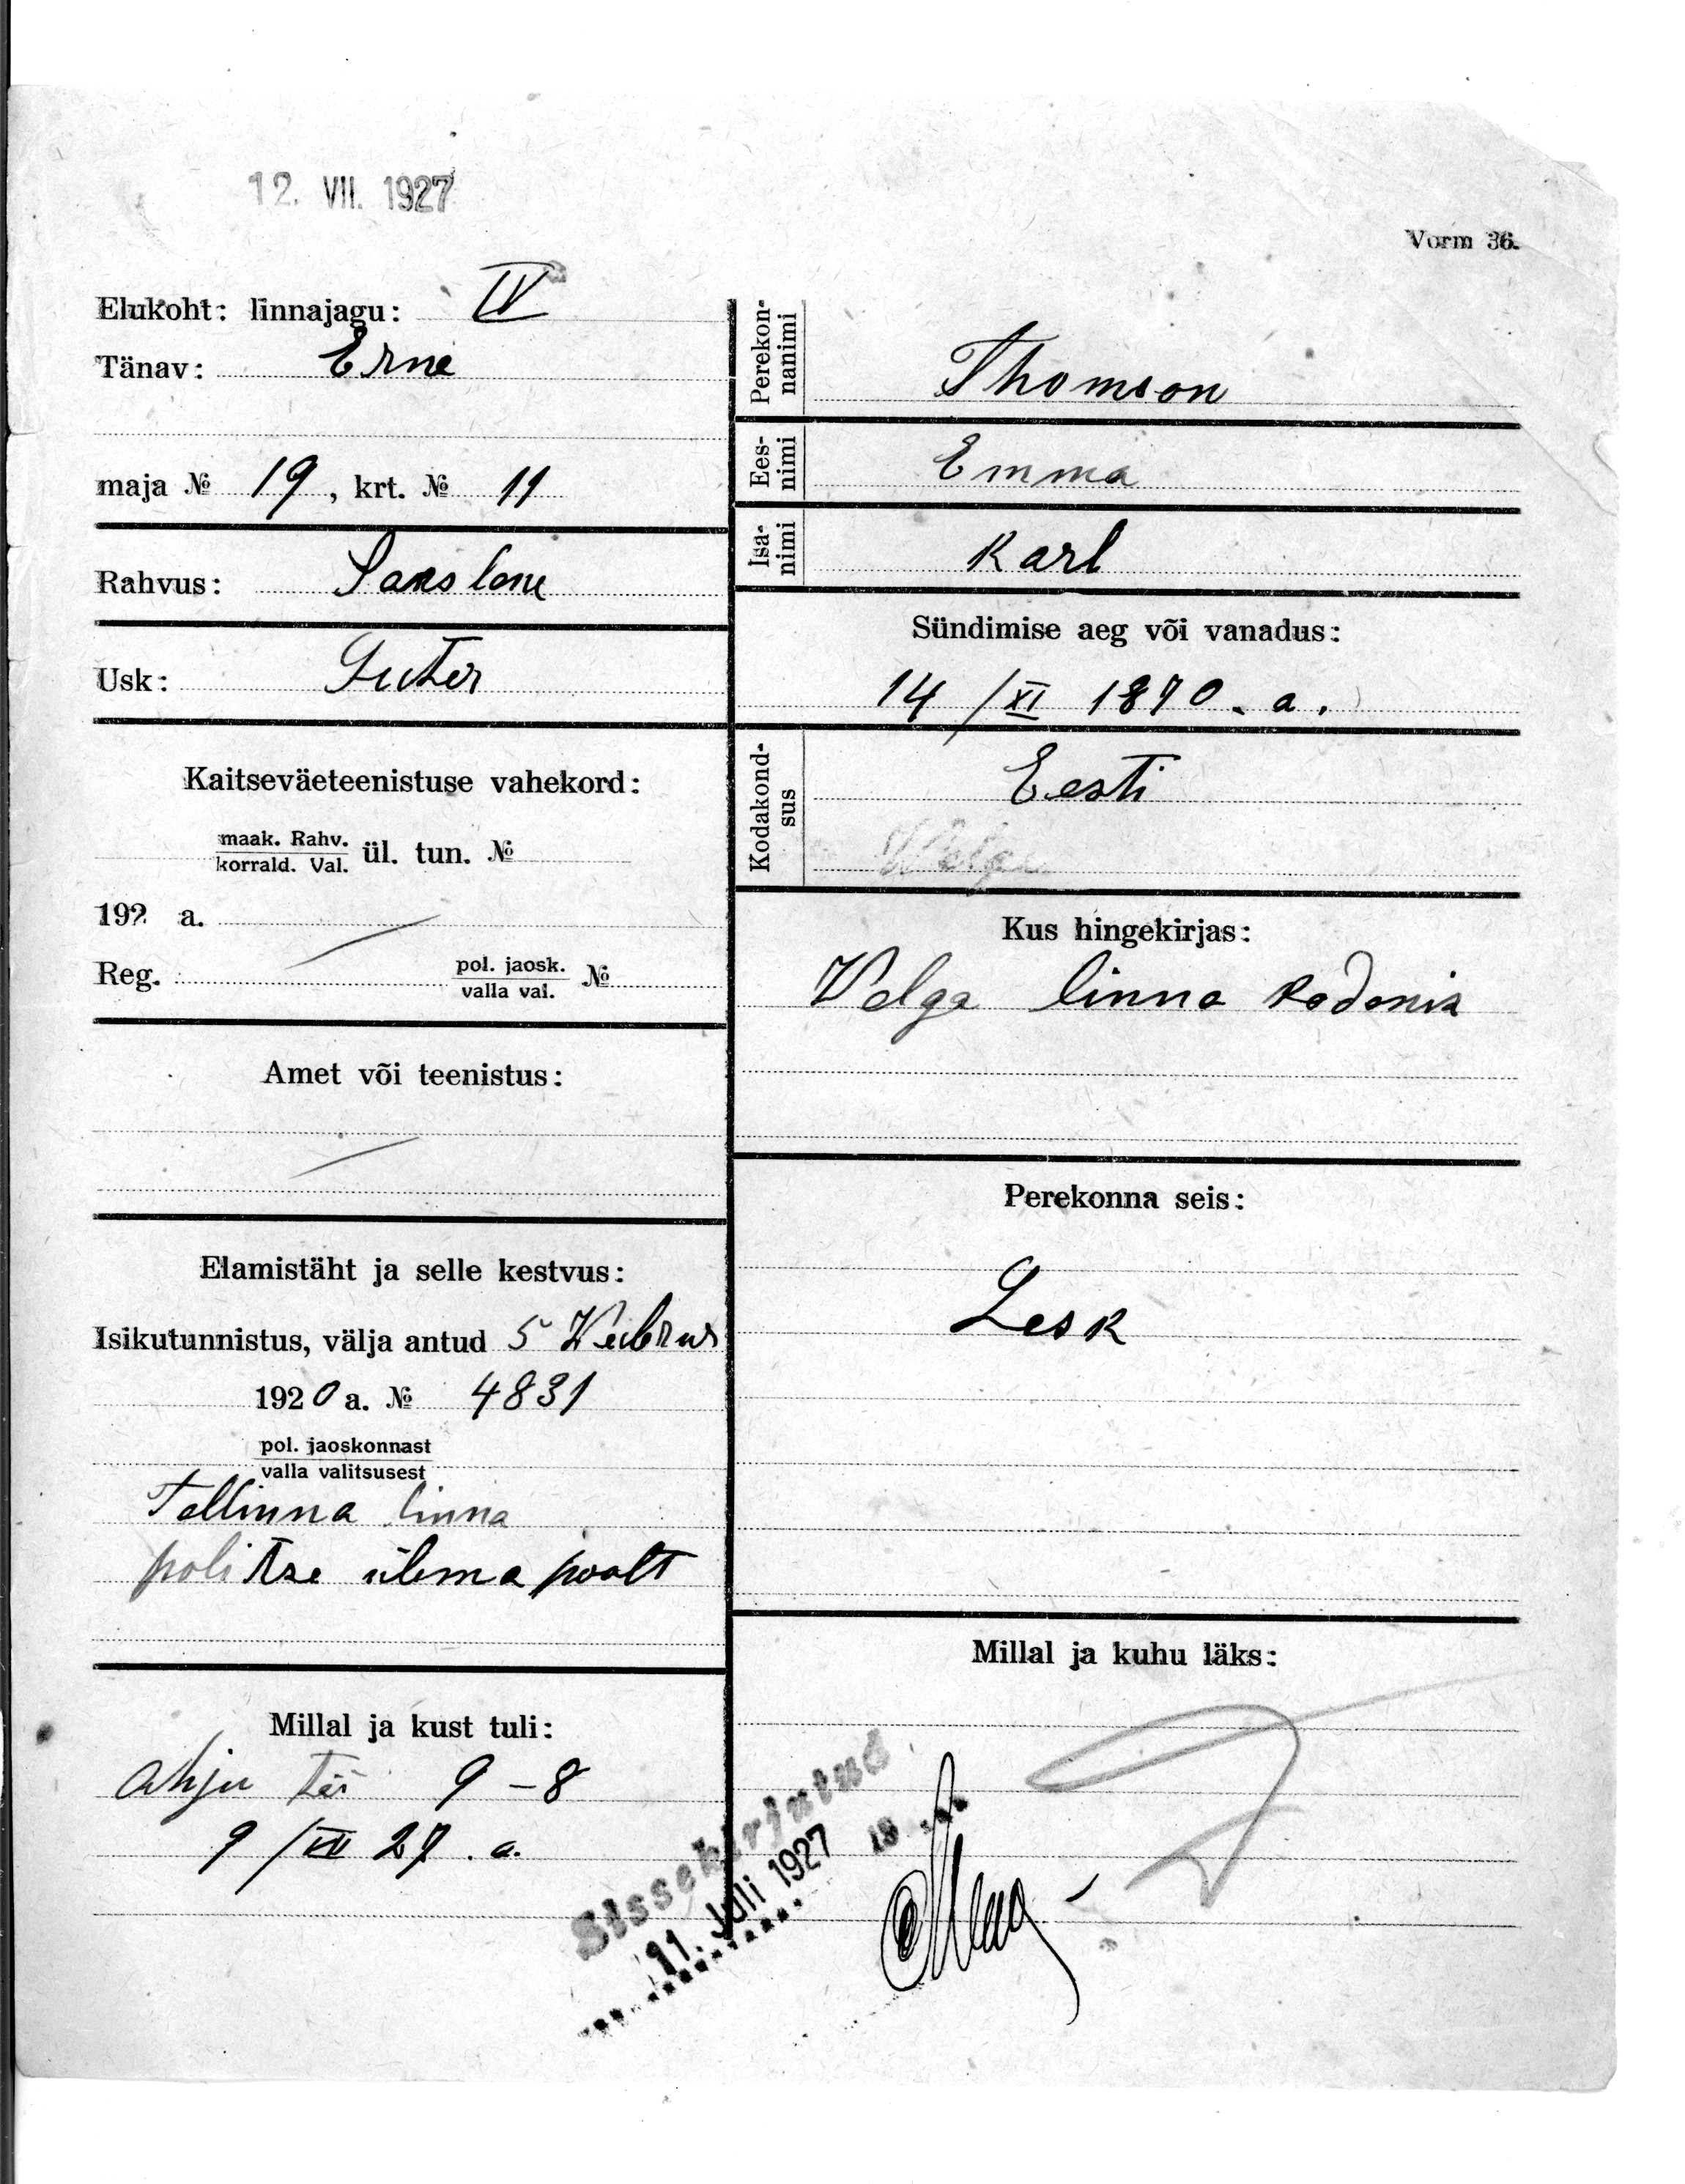 12. VII. 1927
Vorm 36.
Elukoht: linnajagu: IV
Tänav: Erne
maja № 19, krt. № 11
Rahvus: Sakslane
Usk: Luter
Kaitseväeteenistuse vahekord:
maak. Rahv.
korrald. Val. ül. tun. №
192 a.
Reg. pol. jaosk.
valla val. №
Amet või teenistus:
Elamistäht ja selle kestvus:
Isikutunnistus, välja antud 5 Veebruar
1920 a. № 4831
pol. jaoskonnast
valla valitsusest
Tallinna linna
politse ülema poolt
Millal ja kust tuli:
Ahju tän 9-8
9/VII 27. a.
Perekon-
nanimi
Thomson
Ees-
nimi
Emma
Isa-
nimi
Karl
Sündimise aeg või vanadus:
14/XI 1870. a.
Kodakond-
sus
Eesti
Walga
Kus hingekirjas:
Walga linna kodanik
Perekonna seis:
Lesk
Millal ja kuhu läks:
Sissekirjutud
11. Juli 1927 19